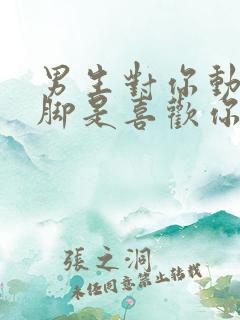 男生對你動
腳是喜歡你
張之洞
未經同意禁止轉載